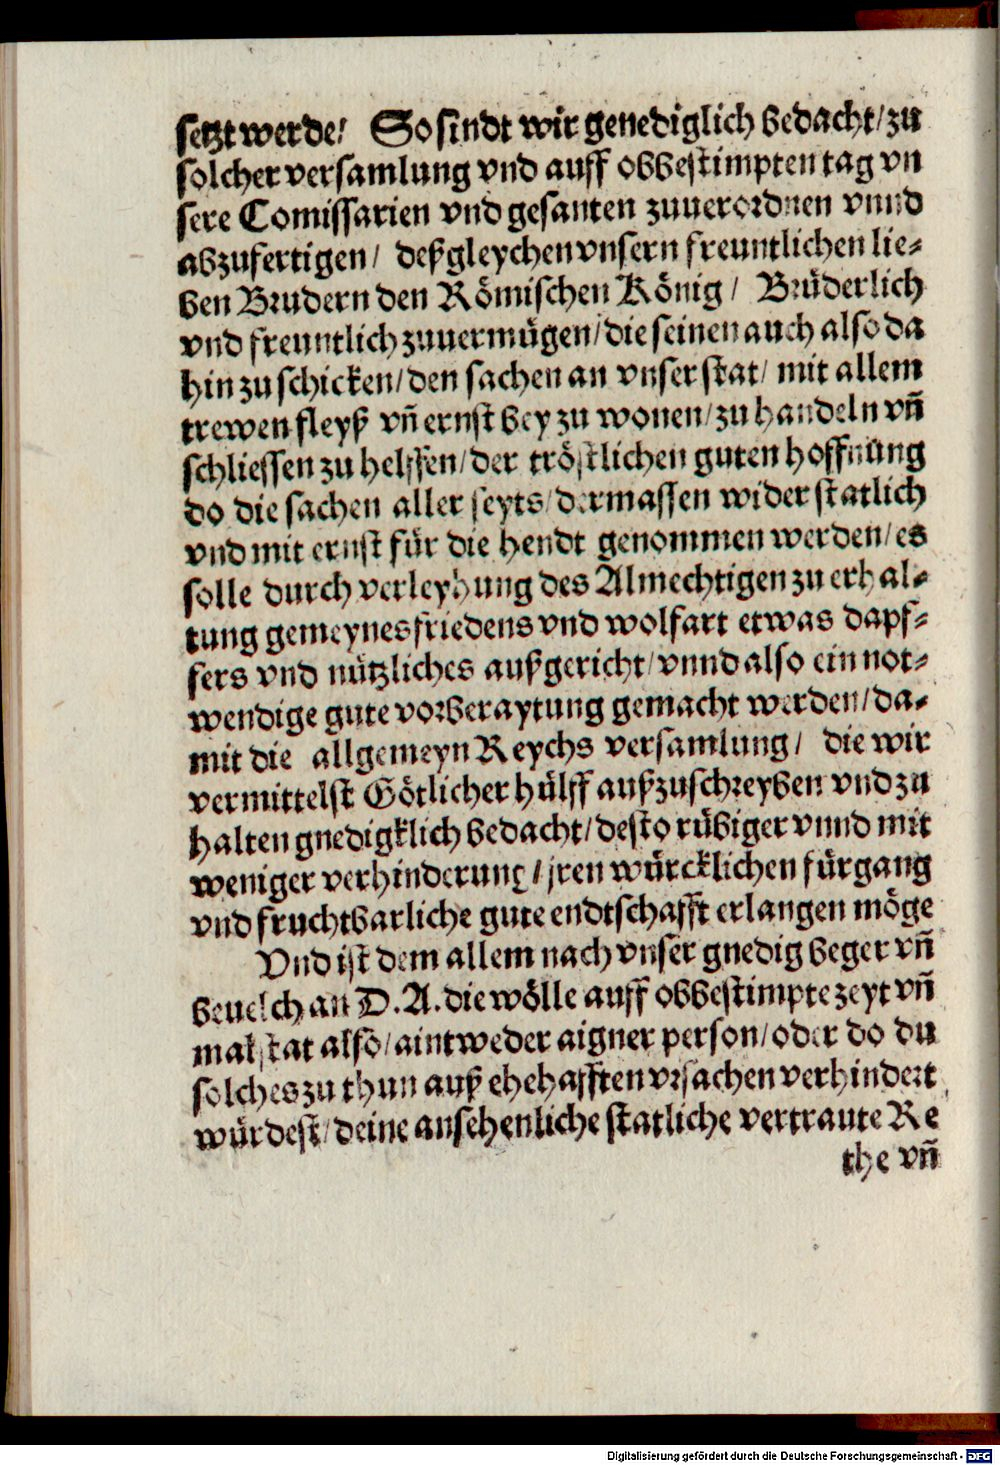 setzt werde/ So sindt wir genediglich bedacht/ zu
solcher versamlung vnd auff obbestimpten tag vn
sere Comissarien vnd gesanten zuuerordnen vnnd
abzufertigen/ deßgleychen vnsern freuntlichen lie-
ben Brudern den Römischen König/ Brüderlich
vnd freuntlich zuuermügen/ die seinen auch also da
hin zu schicken/ den sachen an vnser stat/ mit allem
trewen fleyß vñ ernst bey zu wonen/ zu handeln vñ
schliessen zu helffen/ der tröstlichen guten hoffnung
do die sachen aller seyts/ dermassen wider statlich
vnd mit ernst für die hendt genommen werden/ es
solle durch verleyhung des Almechtigen zu erhal-
tung gemeynes friedens vnd wolfart etwas dapf-
fers vnd nützliches außgericht/ vnnd also ein not-
wendige gute vorberaytung gemacht werden/ da-
mit die allgemeyn Reychs versamlung/ die wir
vermittelst Götlicher hülff außzuschreyben vnd zu
halten gnedigklich bedacht/ desto rübiger vnnd mit
weniger verhinderung/ jren würcklichen fürgang
vnd fruchtbarliche gute endtschafft erlangen möge
Vnd ist dem allem nach vnser gnedig beger vñ
beuelch an D. A. die wölle auff obbestimpte zeyt vñ
malstat also/ aintweder aigner person/ oder do du
solches zu thun auß ehehafften vrsachen verhindert
würdest/ deine ansehenliche statliche vertraute Re
the vñ
Digitalisierung gefördert durch die Deutsche Forschungsgemeinschaft - DFG